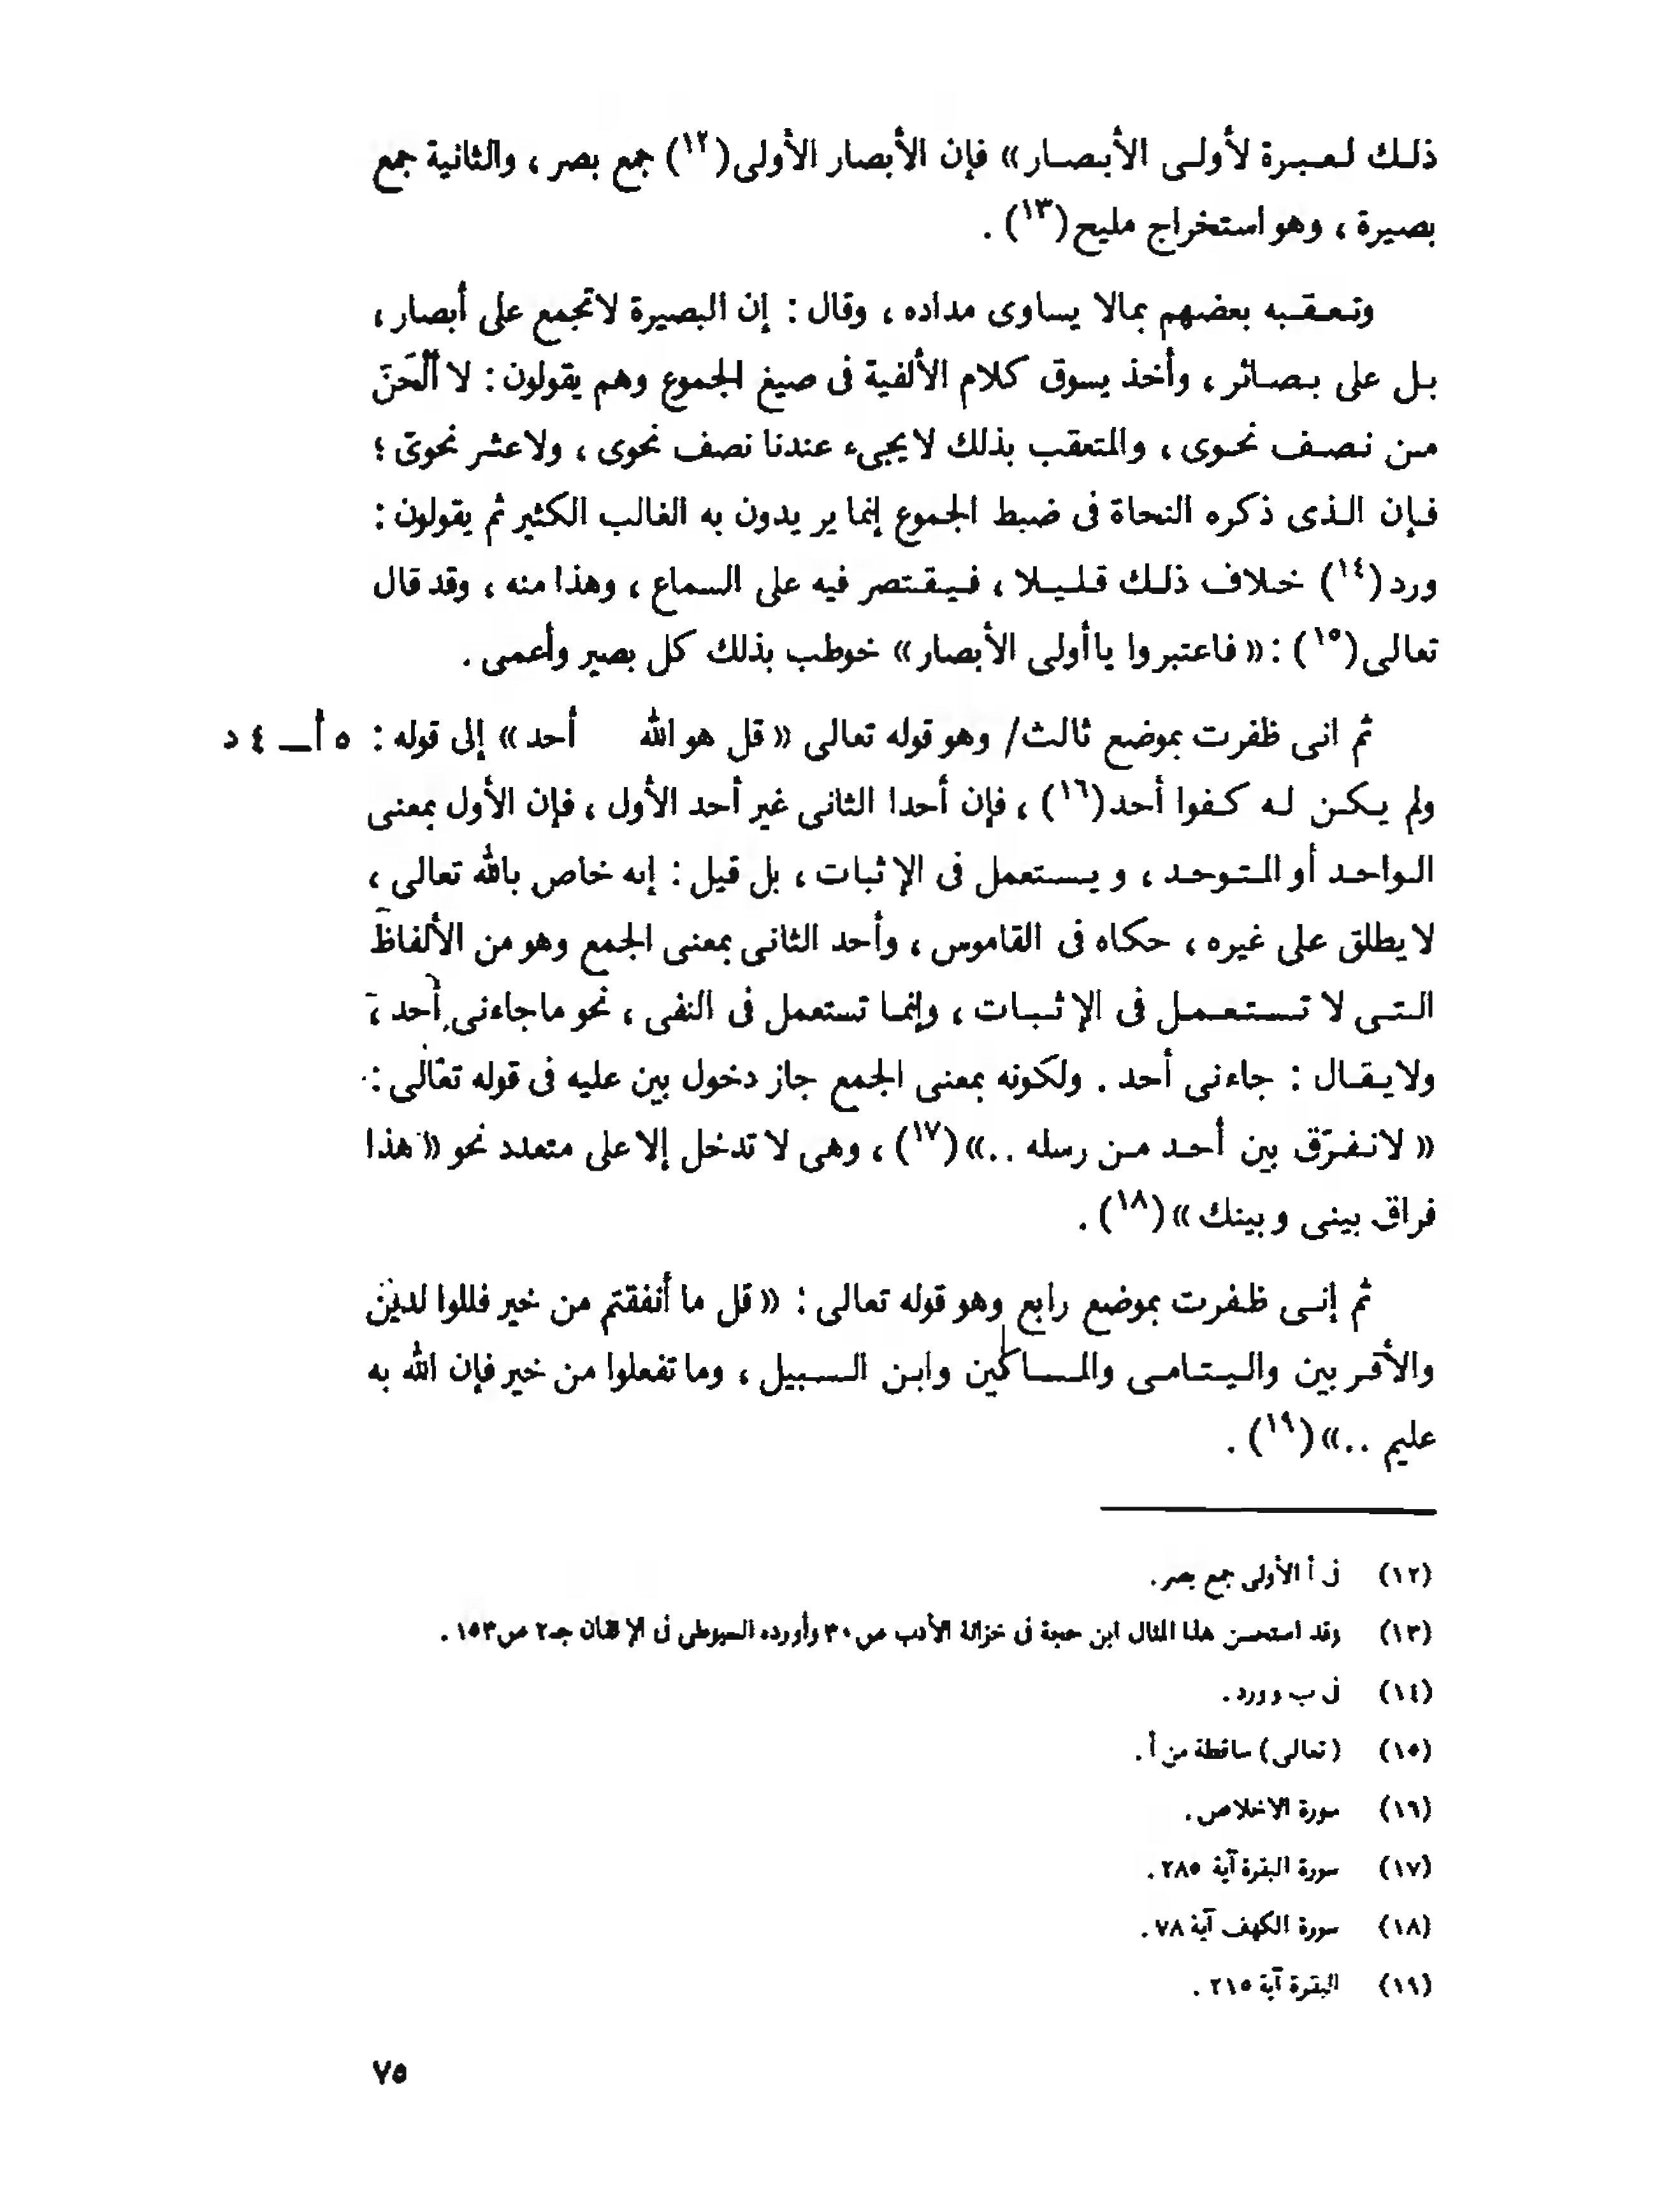 ذلك لعبرة لأولى الأبصار» فإن الأبصار الأولى(١٢) جمع بصر ، والثانية جمع
بصيرة ، وهو استخراج مليح(١٣) .
وتعقبه بعضهم بمالا يساوى مداده ، وقال : إن البصيرة لاتجمع على أبصار ،
بل على بصائر ، وأخذ يسوق كلام الألفية فى صيغ الجموع وهم يقولون : لا ألْحَنَ
من نصف نحوى ، والمتعقب بذلك لايجىء عندنا نصف نحوى ، ولاعشر نحوىّ ؛
فإن الذى ذكره النحاة فى ضبط الجموع إنما يريدون به الغالب الكثير ثم يقولون :
ورد(١٤) خلاف ذلك قليلا ، فيقتصر فيه على السماع ، وهذا منه ، وقد قال
تعالى(١٥) : « فاعتبروا ياأولى الأبصار» خوطب بذلك كل بصير وأعمى .
ثم انى ظفرت بموضع ثالث/ وهو قوله تعالى « قل هو الله أحد » إلى قوله : ٥ أ ــ ٤ د
ولم يكن له كفوا أحد(١٦) ، فإن أحدا الثانى غير أحد الأول ، فإن الأول بمعنى
الواحد أو المتوحد ، ويستعمل فى الإثبات ، بل قيل : إنه خاص بالله تعالى ،
لايطلق على غيره ، حكاه فى القاموس ، وأحد الثانى بمعنى الجمع وهو من الألفاظ
التى لا تستعمل فى الإثبات ، وإنما تستعمل فى النفى ، نحو ماجاءنى أحد ،
ولايقال : جاءنى أحد . ولكونه بمعنى الجمع جاز دخول بين عليه فى قوله تعالى :
« لانفرّق بين أحد من رسله ..»(١٧) ، وهى لا تدخل إلا على متعدد نحو « هذا
فراق بينى وبينك »(١٨) .
ثم إنى ظفرت بموضع رابع وهو قوله تعالى : « قل ما أنفقتم من خير فللوالدين
والأقربين واليتامى والمساكين وابن السبيل ، وما تفعلوا من خير فإن الله به
عليم ..»(١٩) .
(١٢) فى أ الأولى جمع بصر .
(١٣) وقد استحسن هذا المثال ابن حجة فى خزانة الأدب ص٣٠ وأورده السيوطى فى الإتقان جـ٢ ص١٥٣ .
(١٤) فى ب وورد .
(١٥) (تعالى) ساقطة من أ .
(١٦) سورة الاخلاص .
(١٧) سورة البقرة آية ٢٨٥ .
(١٨) سورة الكهف آية ٧٨ .
(١٩) البقرة آية ٢١٥ .
٧٥